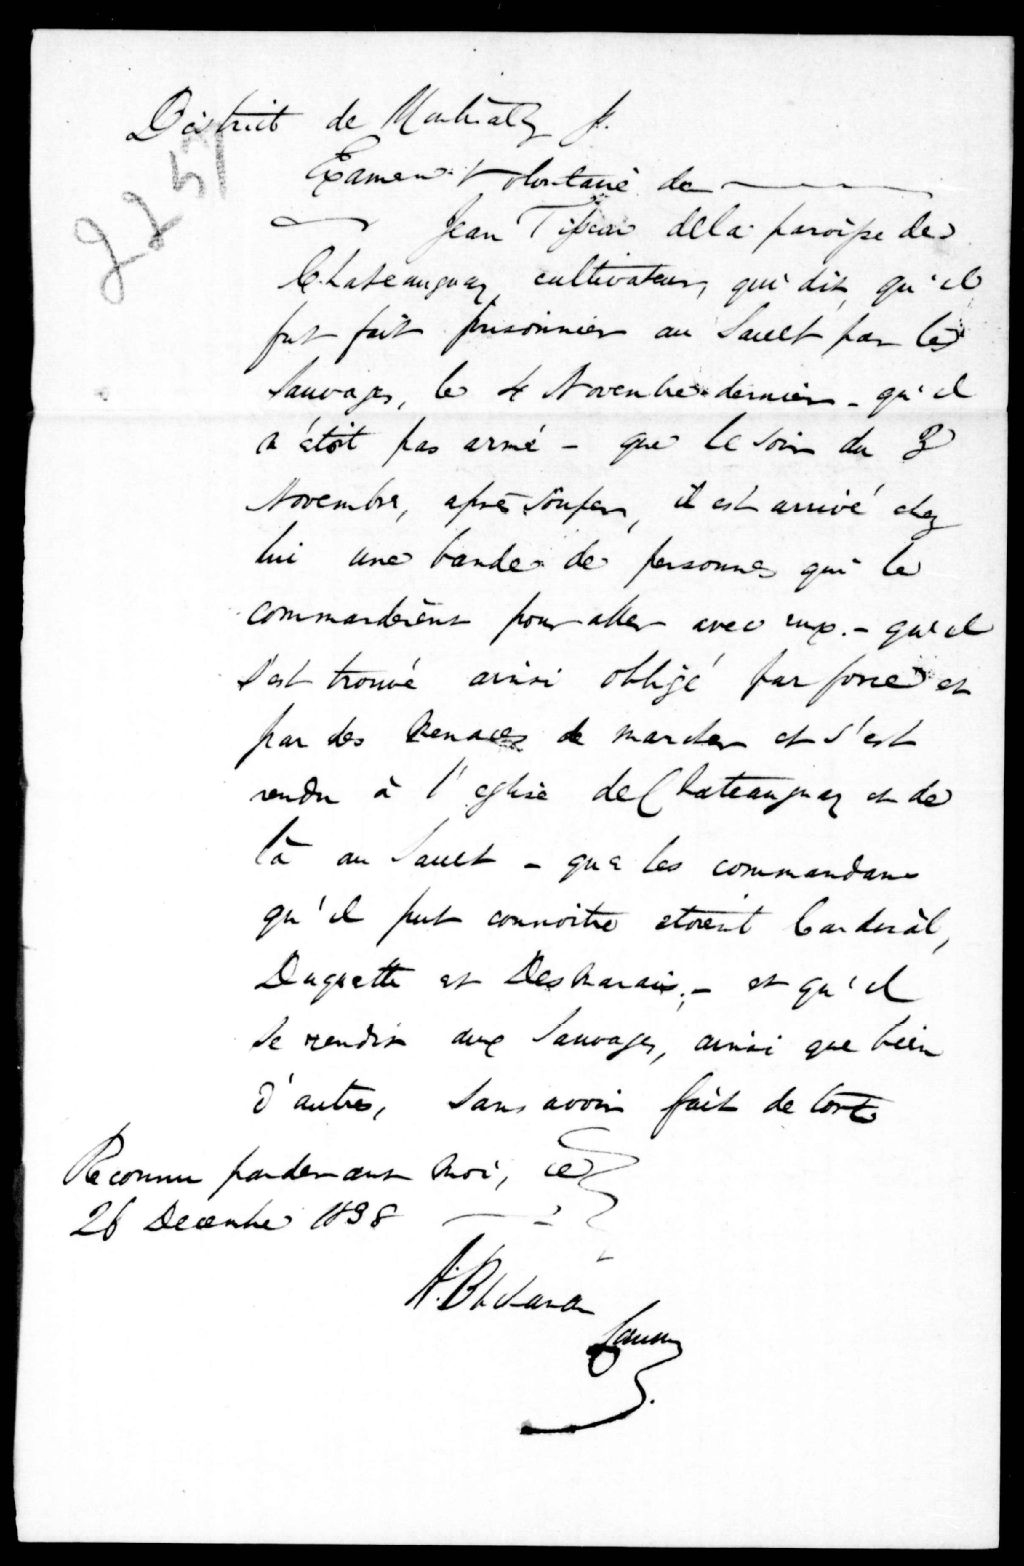 District de Montréal, ss.
2257
Examen Volontaire de
Jean Tisseur de la paroisse de
Chateauguay cultivateur, qui dit, qu'il
fut fait prisonnier au Sault par les
Sauvages, le 4 Novembre dernier - qu'il
n'étoit pas armé - que le soir du 3
Novembre, après souper, il est arrivé chez
lui une bande de personnes qui le
commandèrent pour aller avec eux. - qu'il
s'est trouvé ainsi obligé par force et
par des menaces de marcher et s'est
rendu à l'eglise de Chateauguay et de
là au Sault - que les commandans
qu'il put connoitre etoient Cardinal,
Duquette et Desmarais, - et qu'il
se rendit aux Sauvages, ainsi que bien
d'autres, sans avoir fait de tort
Reconnu pardevant moi, ce
26 Decembre 1838